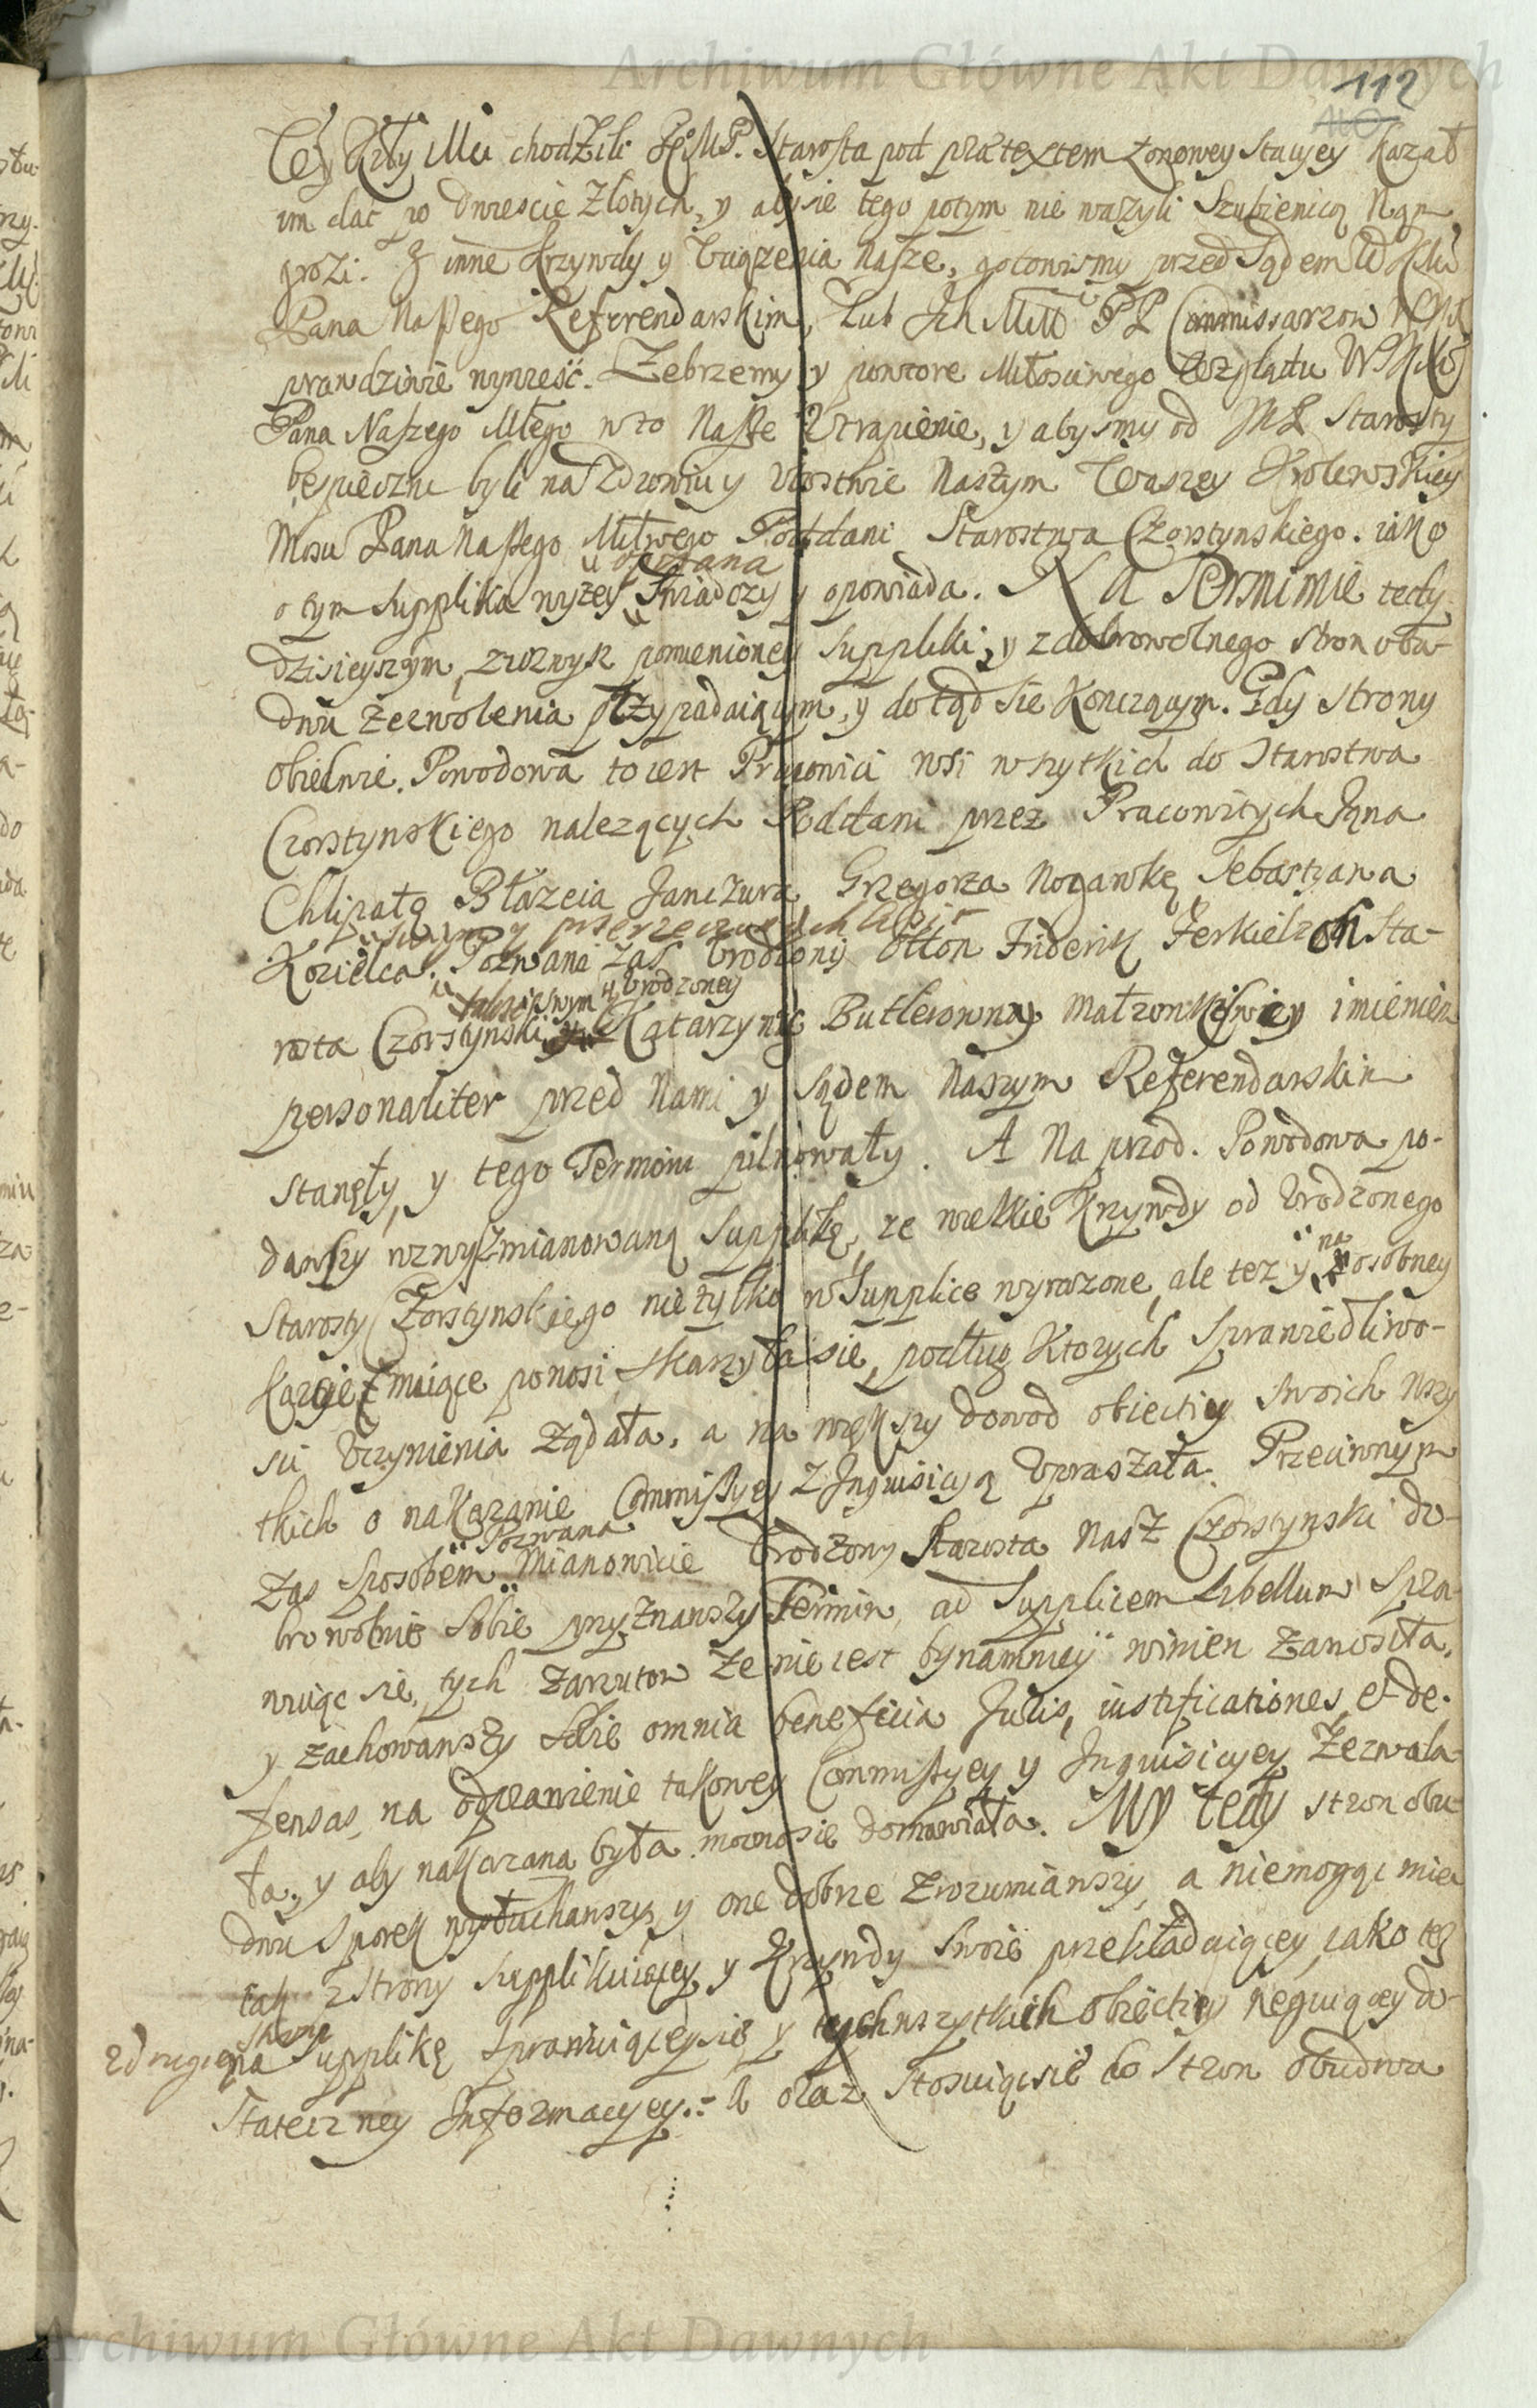 Archiwum Główne Akt Dawnych
112
chodzili JeMP. Starosta pod praetextem zonowey Stacyey kazał
im dac po dwiescie Zlotych, y aby sie tego potym nie wazyli Szubienicą Nam
grozi. Y inne krzywdy y Uciązenia Nasze, gotowismy przed Sądem
Pana Naszego Referendarskim, Lub Ich Mść PP Commissarzow
prawdziwie wynieść. Zebrzemy y powtore Miłosciwego
Pana Naszego Młego w to Nasze Utrapienie, y abysmy od Starosty
bespieczni byli na Zdrowiu y Naszym Waszey Krolewskiey
Mosci Pana Naszego Miłwego Poddani Starostwa Czorstynskiego. iako
opisana
o tym Supplika wyzey Swiadczy y opowiada. Na Terminie tedy
dzisieyszym, z wzwysz pomienioney Suppliki, y z dobrowolnego Stron oba-
dwu zezwolenia przypadaiącym, y dotąd sie Konczącym. Gdy Strony
Obiedwie. Powodowa to iest Pracowici wsi wszytkich do Starostwa
Czorstynskiego nalezących Poddani przez Pracowitych Jana
Chlipałę Błazeia Janczura Grzegorza Nogawkę Sebastyana
Kozielca. Pozwani zas Urodzony Otton Friderik Sta-
swym y Urodzoney
rosta Czorstynski Katarzynie Butlerowny Małzonki imieniem
personaliter przed Nami y Sądem Naszym Referendarskim
Stanęły, y tego Terminu pilnowały. A Naprzod. Powodowa po-
dawszy wzwyszmianowaną Supplikę, ze wielkie Krzywdy od Urodzonego
na
Starosty Czorstynskiego nie tylko w Supplice wyrazone, ale tez y osobney
Karcie maiące ponosi skarzyła sie, podług Ktorych Sprawiedliwo-
sci Uczynienia Ządała, a na większy dowod obiectiy Swoich wszy
tkich o nakazanie Commissyey z Inquisicyą Upraszała. Przeciwnym
Pozwana
Zas Sposobem Mianowicie Urodzony Starosta Nasz Czorstynski do-
browolnie Sobie przyznawszy Termin, ad Supplicem Libellum Spra-
wuiąc sie, tych Zarzutow Ze nie iest bynamniey winien Zanosiła,
y Zachowawszy Sobie omnia beneficia Juris, iustificationes, et de-
fensas, na odprawienie takowey Commissyey y Inquisicyey Zezwala-
ła, y aby nakazana była mocno sie domawiała. My tedy Stron obu-
dwu Sporek wysłuchawszy, y one dobrze Zrozumiawszy, a niemogąc miec
tak z Strony Supplikuiącey, y Krzywdy Swoie przekładaiącey, iako tez
Strony
z drugiey na Supplikę Sprawuiącey sie y tych wszytkich obiectiy neguiącey do-
Stateczney Informacyey. A oraz Stosuiąc sie do Stron obudwu
Archiwum Główne Akt Dawnych